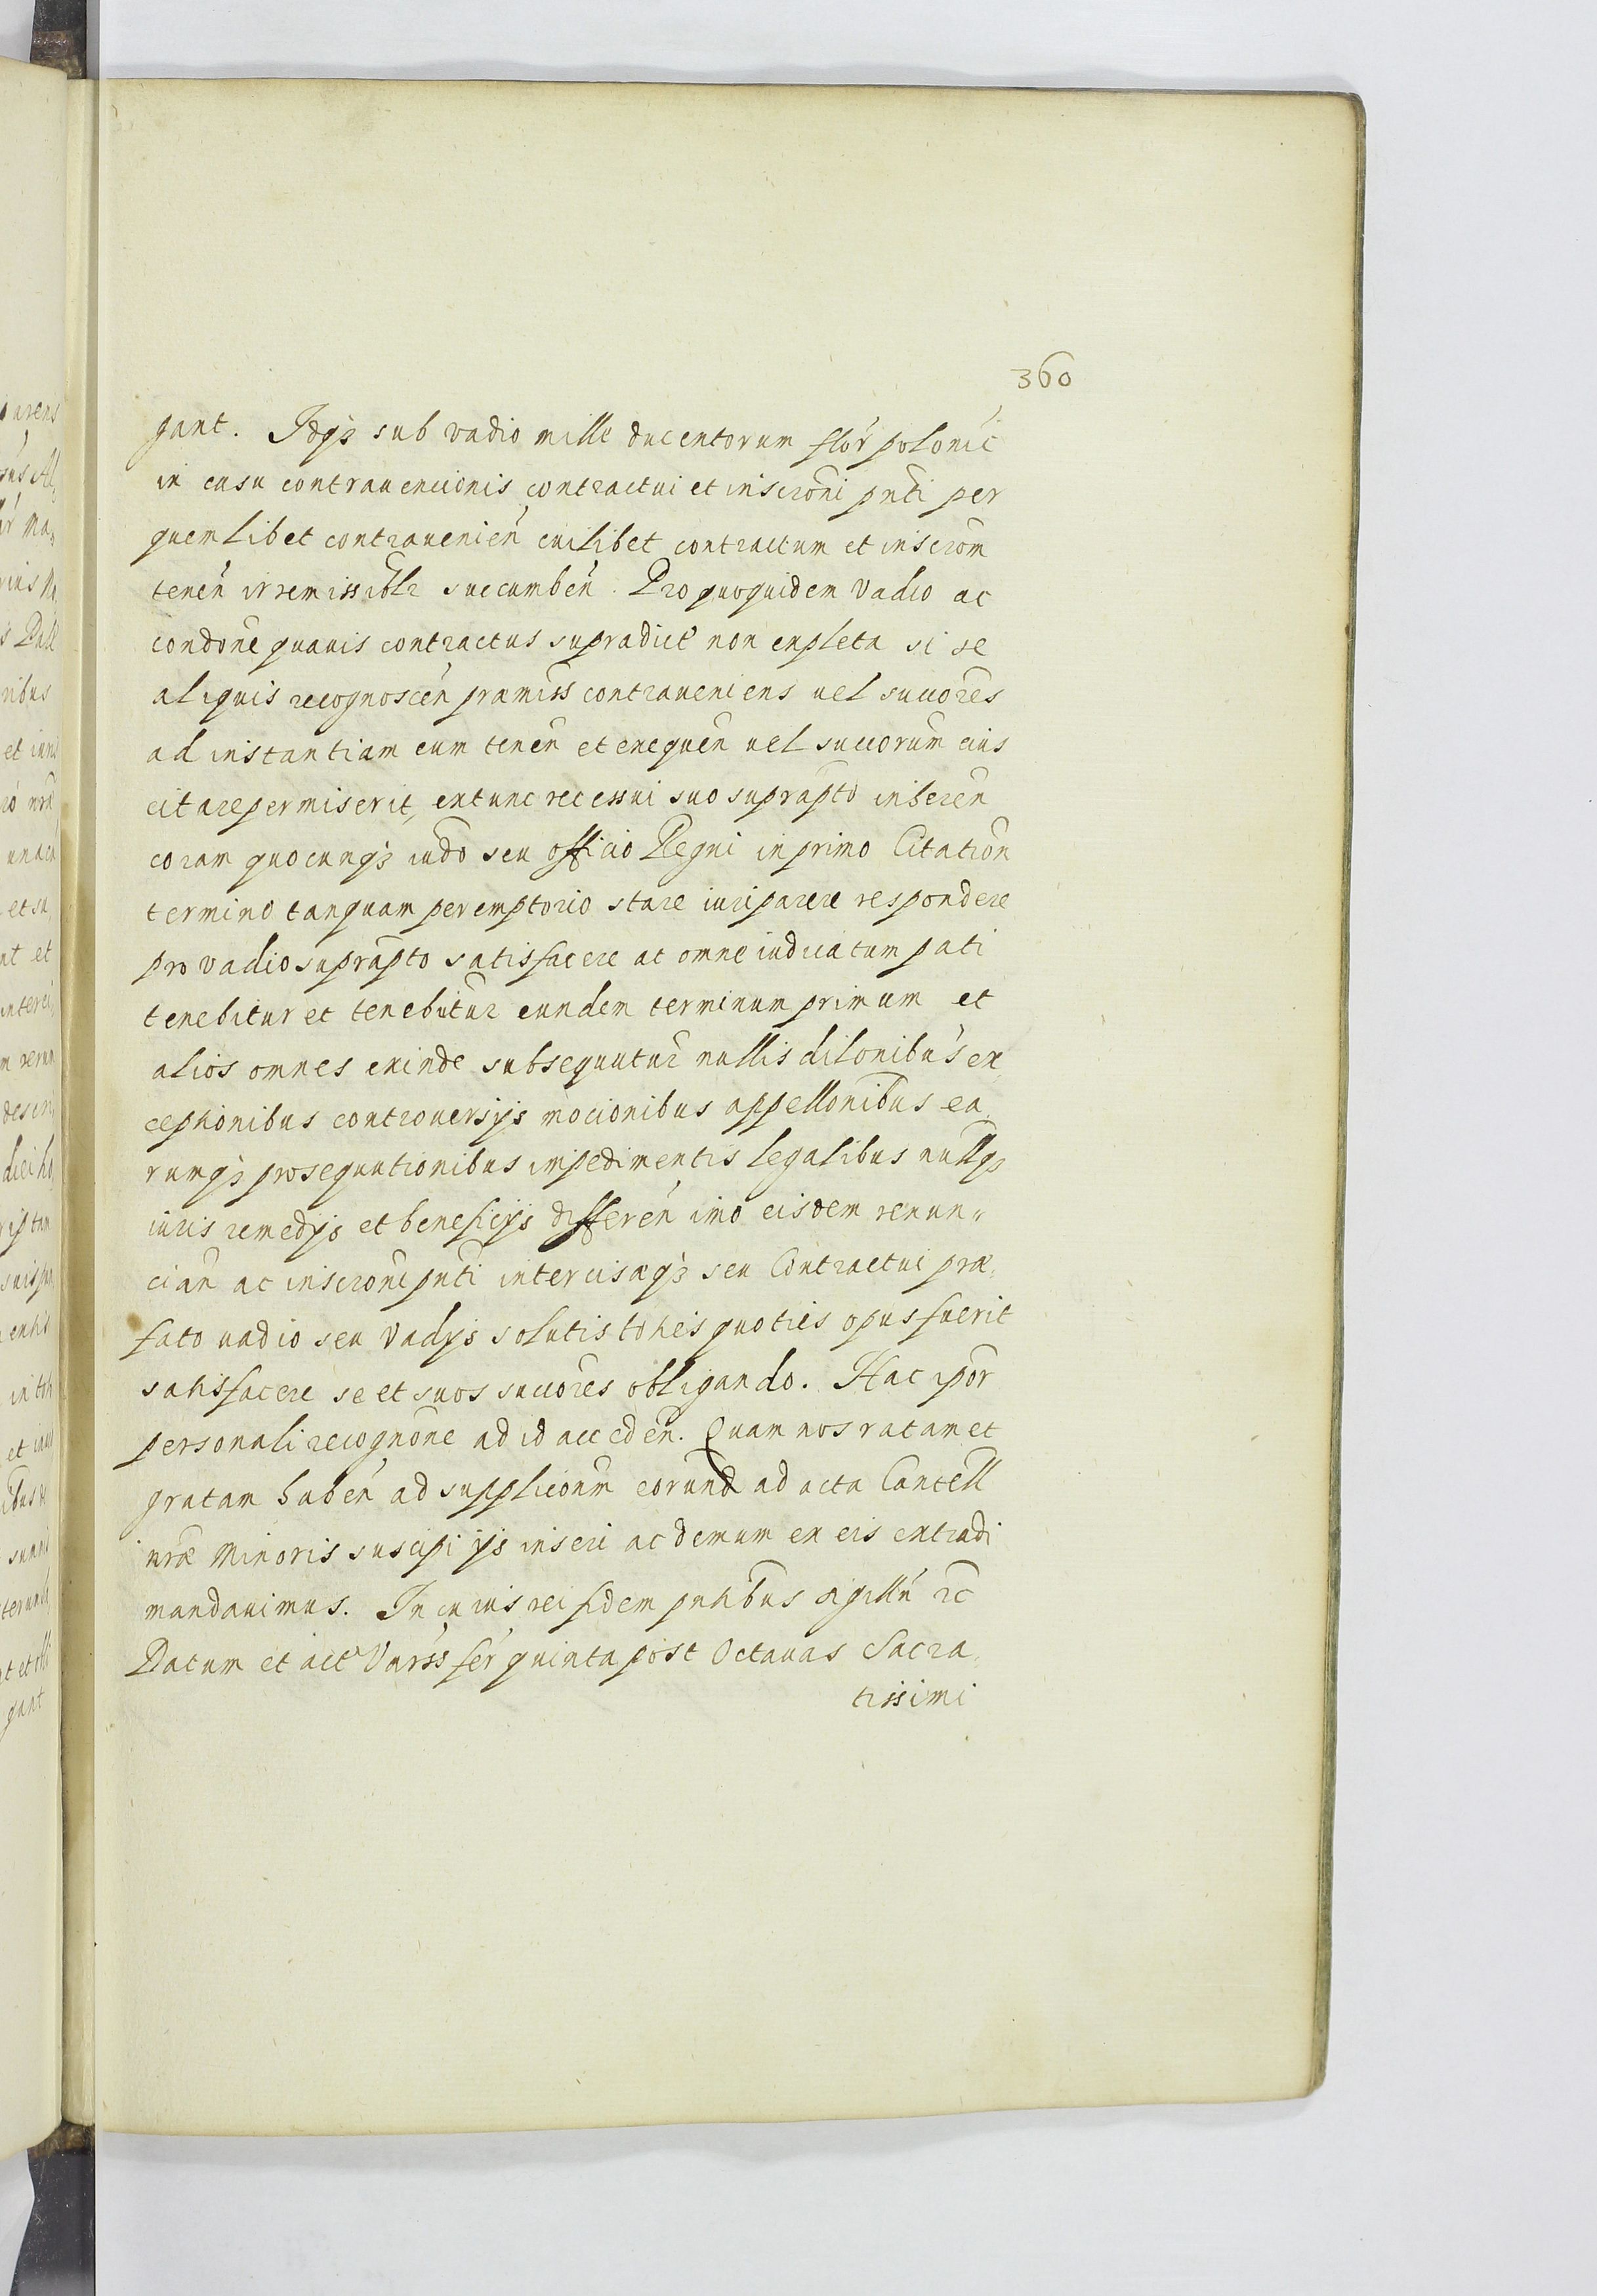 360
gant. Idqз sub vadio mille ducentorum flor polonic
in casu contrauencionis contractui et inscroni pnti per
quemlibet contrauenien cuilibet contractum et inscrom
tenen irremissiblr succumben. Pro quoquidem Vadio ac
condone quauis contractus supradict non expleta si se
aliquis recognoscen pramiss contraueniens uel succores
ad instantiam eum tenen et exequen uel succorum eius
citare permiserit, extunc recessui suo suprapto inheren
coram quocunqз iudo seu officio Regni in primo Citation
termino tanquam peremptorio stare iuri parere respondere
pro vadio suprapto satisfacere ac omne iudicatum pati
tenebitur et tenebitur eundem terminum primum et
alios omnes exinde subsequutur nullis dilonibus ex,
ceptionibus controuersijs mocionibus appellonibus ea,
rumqз prosequutionibus impedimentis legalibus nullqз
iuris remedijs et beneficijs differen imo eisdem renun„
cian ac inscroni pnti intercisaqз seu Contractui præ,
fato uadio seu Vadijs solutis toties quoties opus fuerit
satisfacere se et suos succores obligando. Hac ipor
personali recognone ad id acceden. Quam nos ratam et
gratam haben ad supplicionm eorund ad acta Cancell
nræ Minoris suscipi ijs inseri ac demum ex eis extradi
mandauimus. In cuius rei fidem pntibus sigillu rc
Datum et act Varss fer quinta post Octauas Sacra,
tissimi